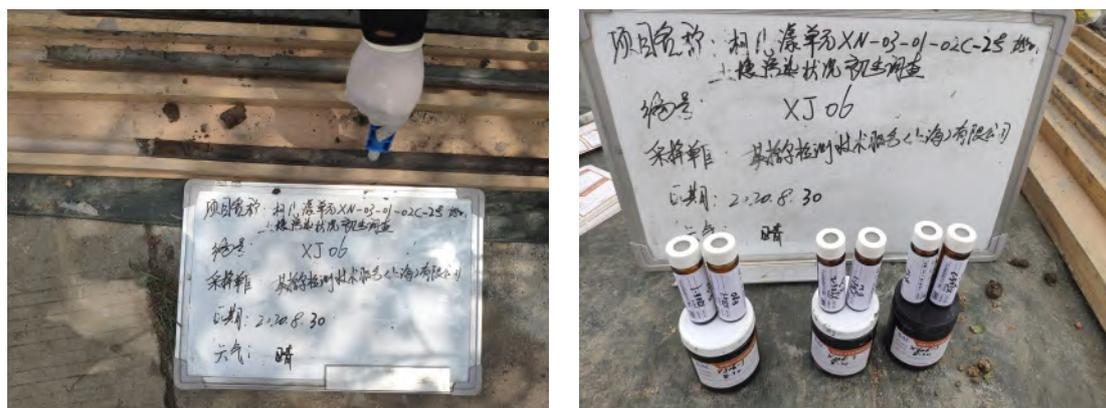 项目名称：柯几藻单元XN-03-01-02C-25地块,
土壤污染状况初步调查
编号：XJ06
采样单位 英格尔检测技术服务(上海)有限公司
日期：2020.8.30
天气：晴
项目名称：柯几藻单元XN-03-01-02C-25地块,
土壤污染状况初步调查
编号：XJ06
采样单位 英格尔检测技术服务(上海)有限公司
日期：2020.8.30
晴